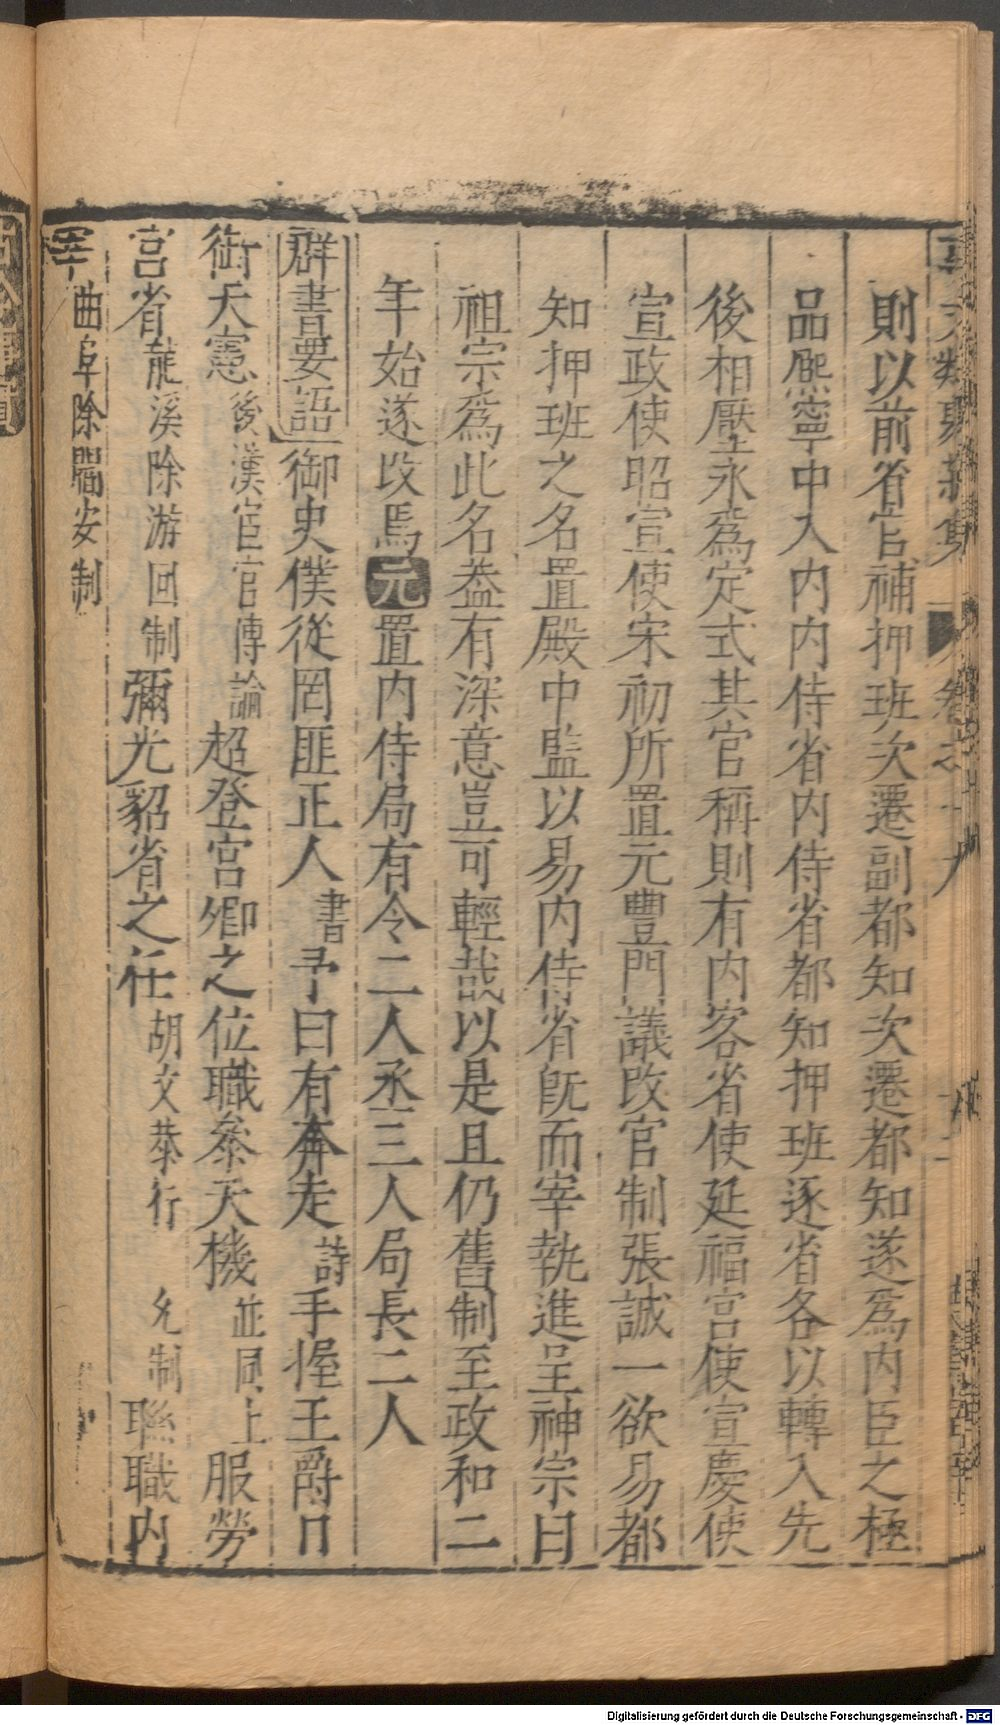 則以前省官補押班次遷副都知次遷都知遂爲内臣之極
品熈寧中入内内侍省内侍省都知押班逐省各以轉入先
後相壓永爲定式其官稱則有内客省使延福宮使宣慶使
宣政使昭宣使宋初所置元豐門議改官制張誠一欲易都
知押班之名置殿中監以易内侍省既而宰執進呈神宗曰
祖宗爲此名葢有深意豈可輕哉以是且仍舊制至政和二
年始遂改焉元置内侍局有令二人丞三人局長二人
群書要語御史僕從罔匪正人書予曰有奔走詩手握王爵口
銜天憲後漢宦官傳論超登宮卿之位職叅天機並同上服勞
宮省龍溪除游回制彌光貂省之任胡文恭行制聯職内
宰曲阜除閻安制
Digitalisierung gefördert durch die Deutsche Forschungsgemeinschaft - DFG